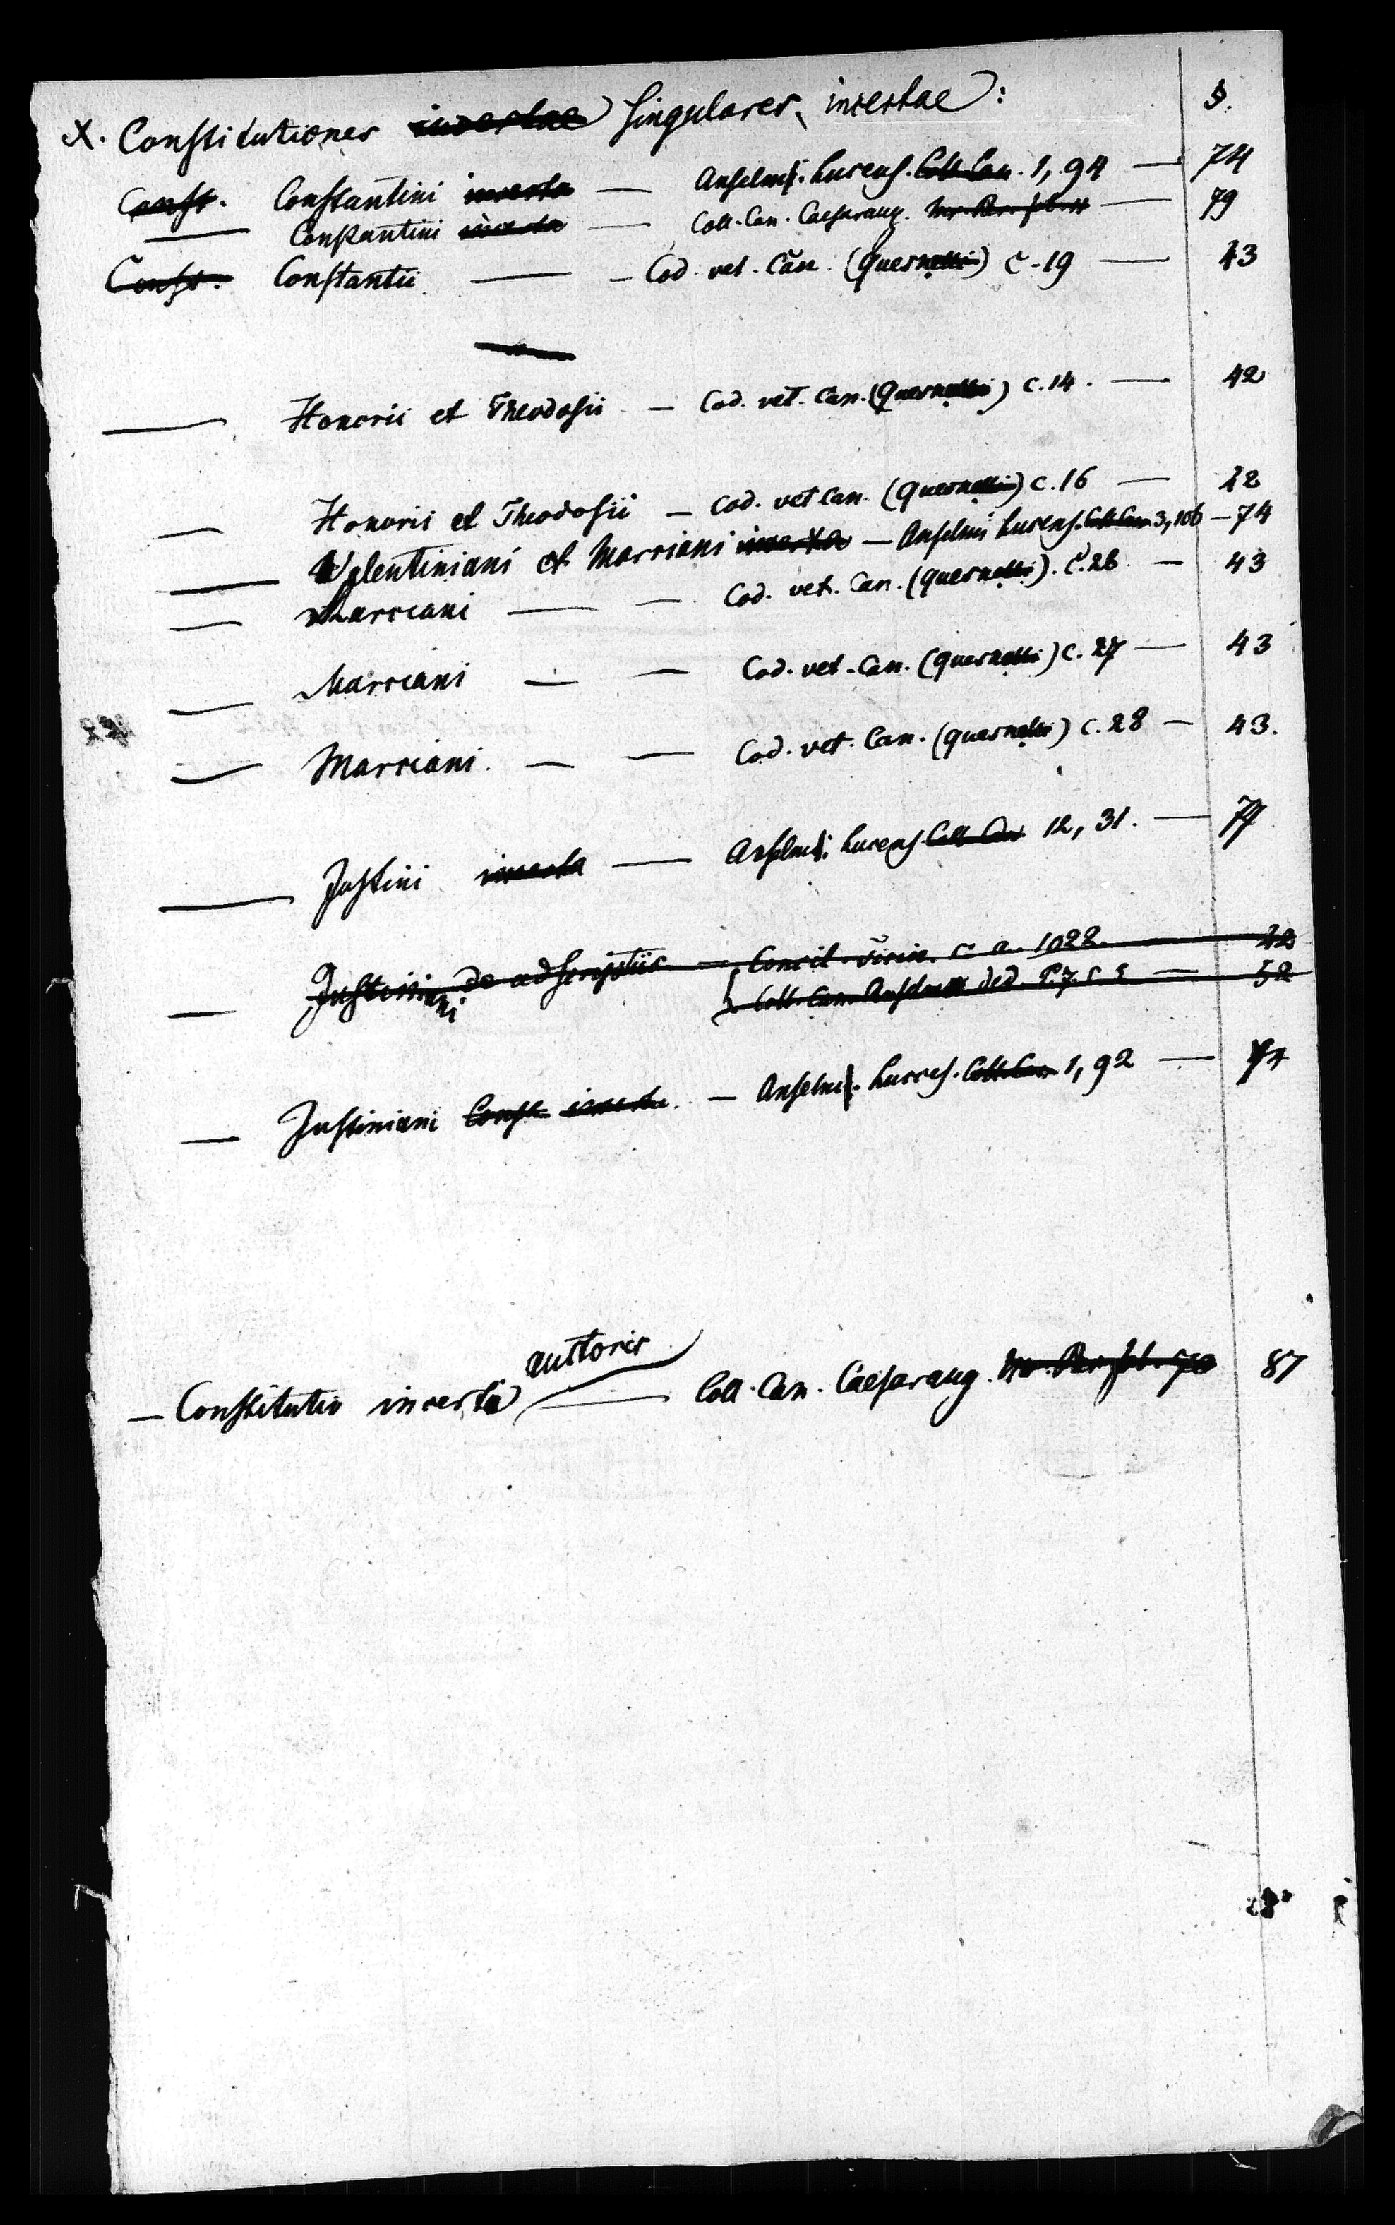 X. Constitutiones incertae Singulares, incertae: S.
Const. Constantini incerta — Anselmi Lucens. Coll. Can. 1, 94 — 74
— Constantini incerta — Coll. Can. Caesaraug. — 79
Const. Constantii — Cod. vet. Can. (Quesnelli) c. 19 — 43
— Honorii et Theodosii — Cod. vet. Can. (Quesnelli) c. 14. — 42
— Honorii et Theodosii — Cod. vet Can. (Quesnelli) c. 16 — 42
— Valentiniani et Marciani incerta — Anselmi Lucens. Coll. Can. 3, 106 — 74
— Marciani — Cod. vet. Can. (Quesnelli). c. 26 — 43
— Marciani — Cod. vet. Can. (Quesnelli) c. 27 — 43
— Marciani. — Cod. vet. Can. (Quesnelli) c. 28 — 43.
— Justini incerta — Anselmi Lucens. Coll. Can. 12, 31. — 74
— Justiniani de adscriptiis — Concil. Ticin. a. 1022. — 42
Coll. Can. Anselmo ded. P. 7. c. — 52
— Justiniani Const. incerta. — Anselmi Lucens. Coll. Can. 1, 92 — 74
— Constitutio incerti auctoris — Coll. Can. Caesaraug. 87